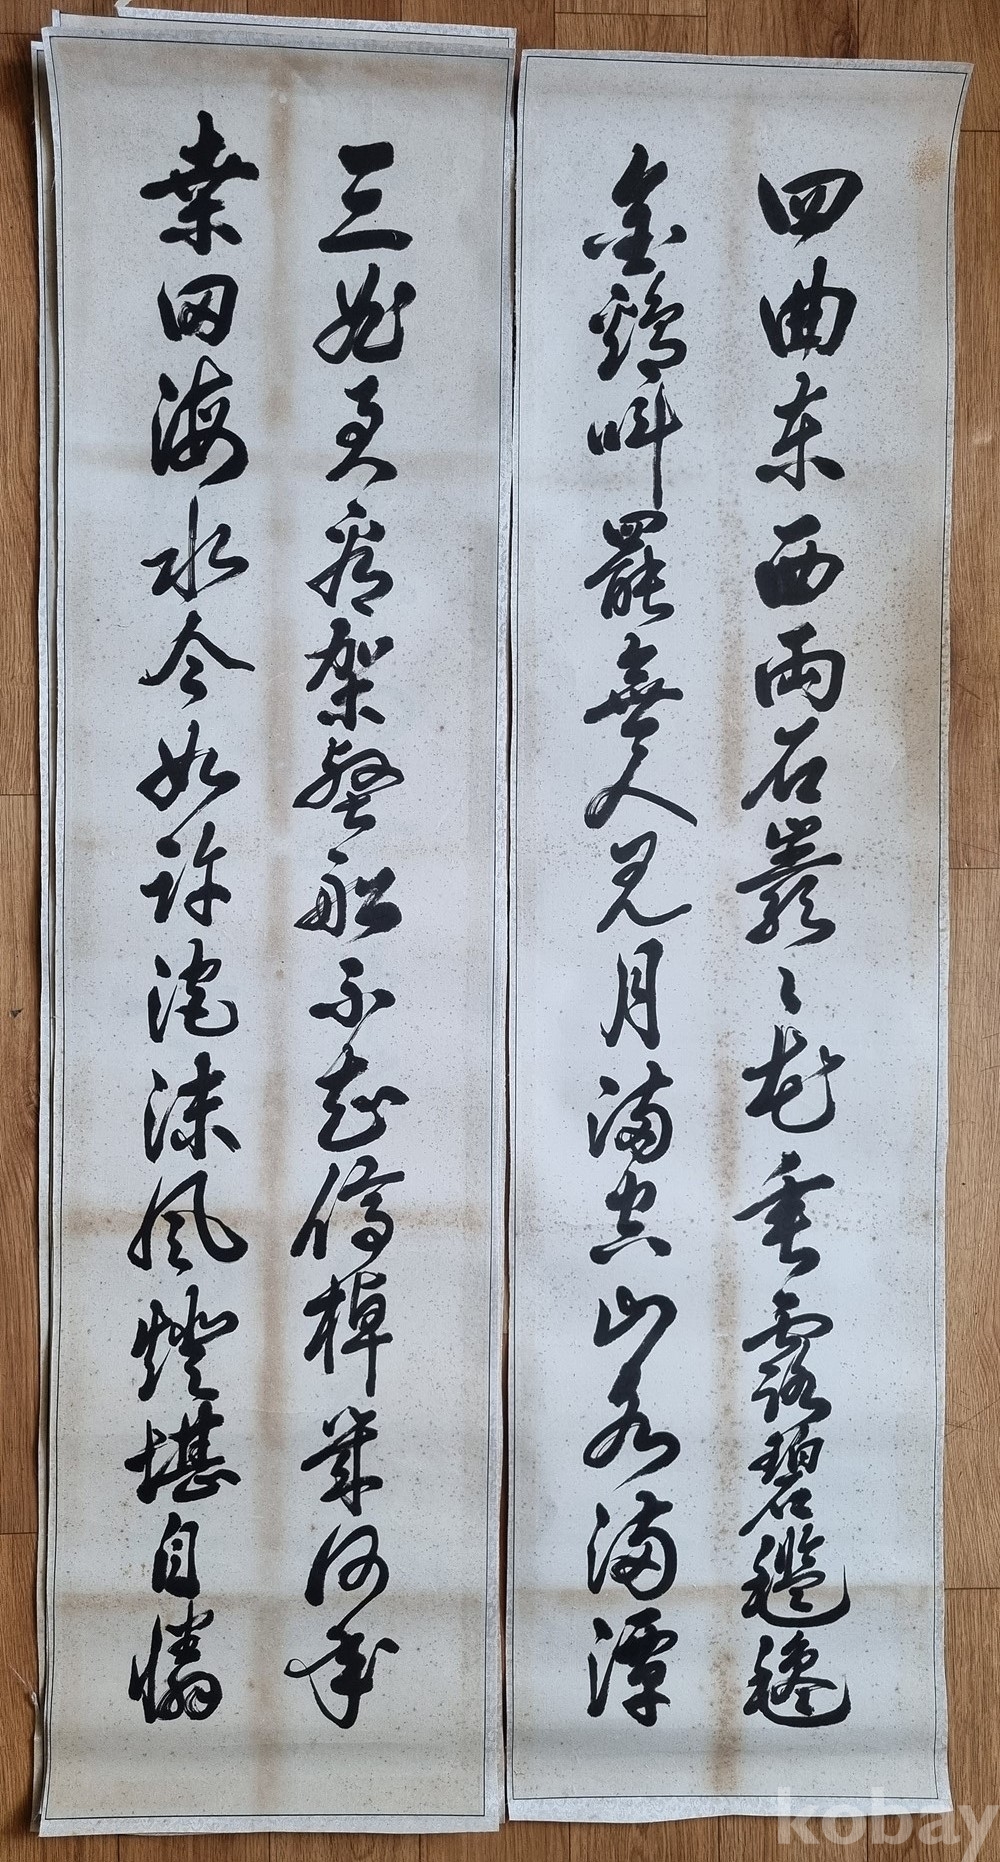 四曲東西兩石巖〻花垂露碧㲯毿
金鷄叫罷無人見月滿空山水滿潭
三曲君看架壑船不知停棹幾何年
桑田海水今如許泡沫風燈堪自憐
kobay